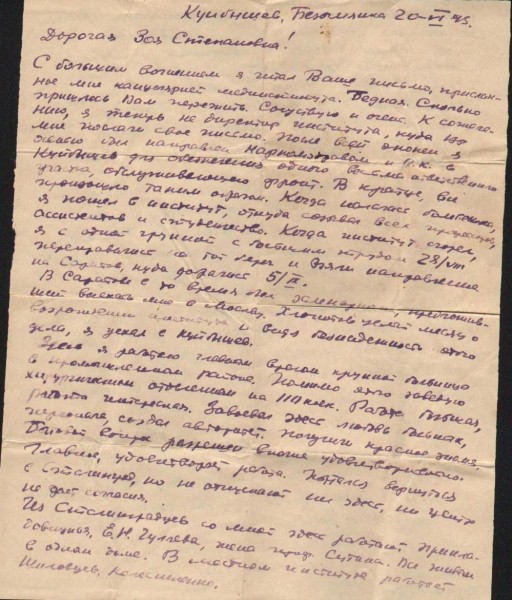 Куйбышев, Безымянка 20-VI 43.
Дорогая Зоя Степановна!
С большим волнением я читал Ваше письмо, прислан-
ное мне канцелярией мединститута. Бедная. Сколько
пришлось Вам пережить. Сочувствую и очень. К сожале-
нию, я теперь не директор института, куда Вы
мне послали свое письмо. После всей эпопеи я
был направлен Наркомздравом и
Куйбышев для одного весьма ответственного
участка, обслуживающего фронт. В кратце,
произошло таким образом. Когда началась бомбежка,
я пошел в институт, откуда созвал всех профессоров,
ассистентов и студенчество. Когда институт сгорел,
я с одной группой с большим трудом 28/VIII
переправились на тот берег и взяли направление
на Саратов, куда добрались 5/IX.
В Саратове в то время был
выехать мне в Москву. Хлопотал целый месяц о
института и видя безнадежность этого
дела, я уехал в Куйбышев.
Здесь я работаю главным врачом крупной больницы
в промышленном районе. Помимо этого заведую
хирургическим отделением на 110 коек. Работа большая,
работа интересная. Завоевал здесь любовь больных,
персонала, создал авторитет. Получили красное знамя.
вопрос разрешен вполне удовлетворительно.
Главное, удовлетворяет работа. Пытался вернуться
в Сталинград, но не отпускают ни здесь, ни центр
не дает согласия.
Из Сталинградцев со мной здесь работают
Е.Н. Гуляева, жена проф. Все живем
в одном доме. В местном институте работает